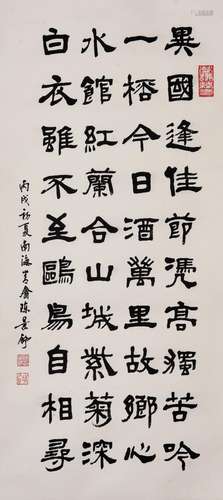 異國逢佳節憑高獨苦吟
一今日酒萬里故鄉心
水館紅蘭合山城紫菊深
白衣雖不至鷗鳥自相尋
丙戌初夏南海陳景舒